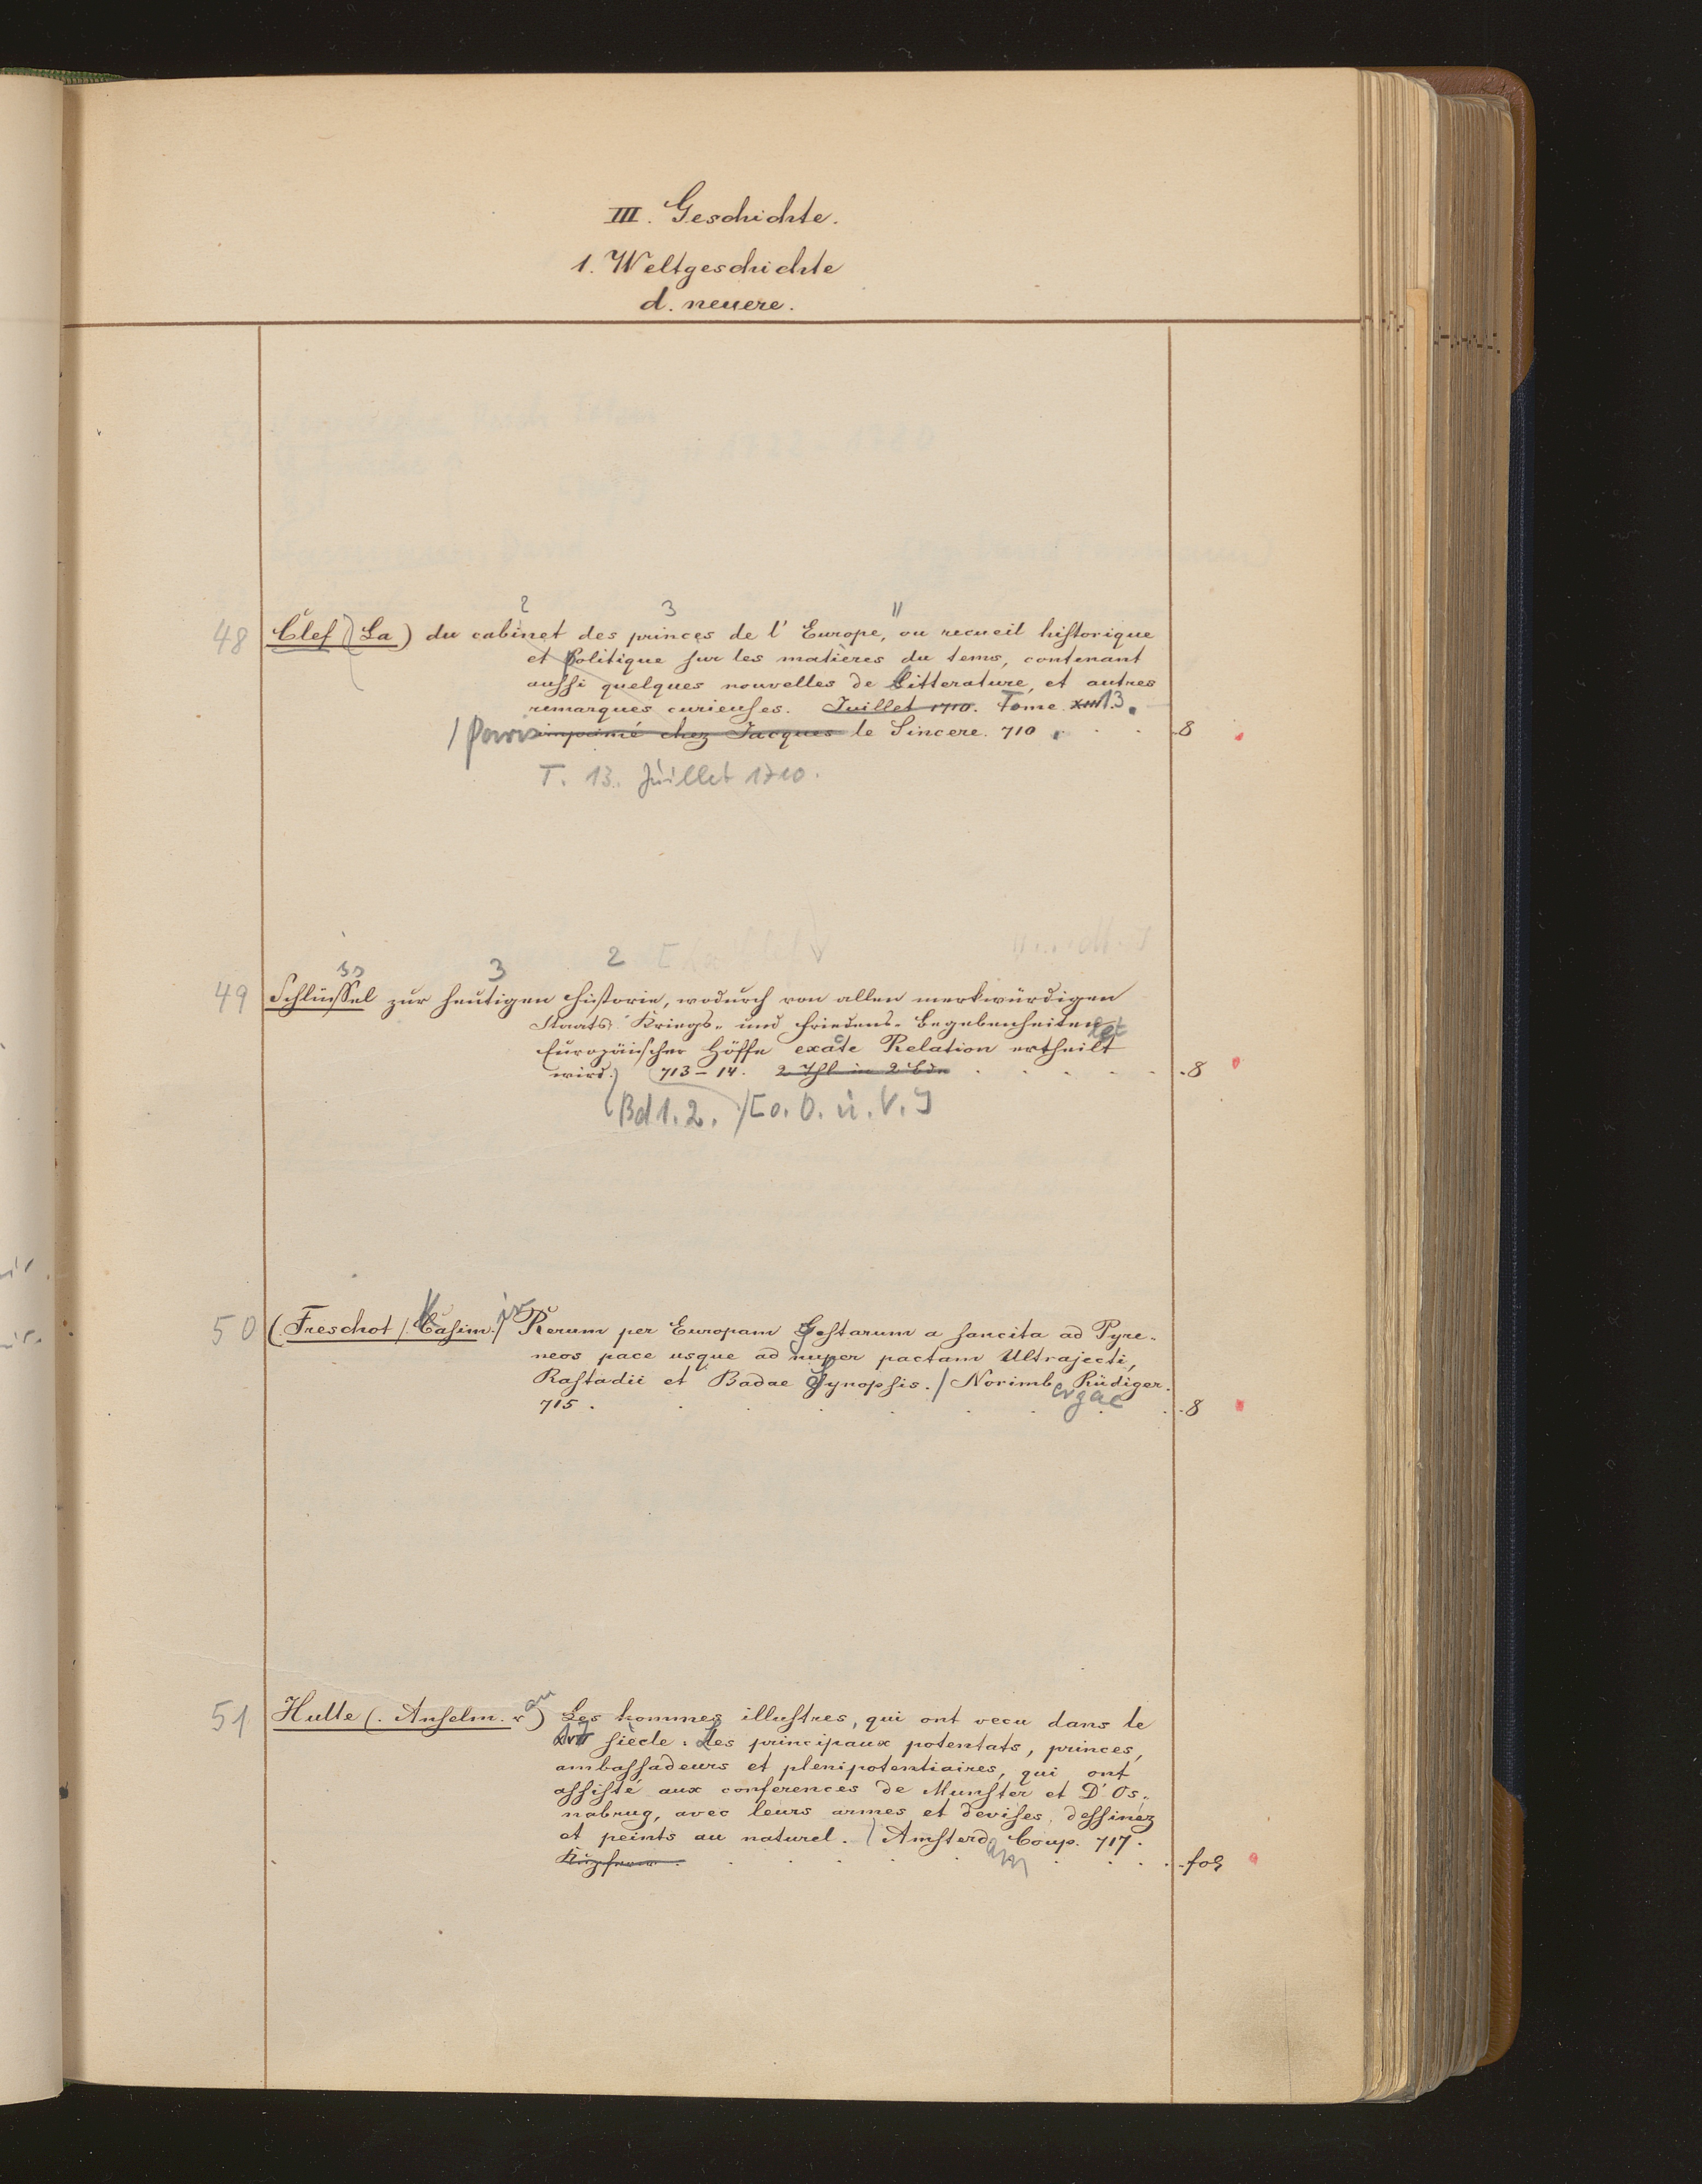 III. Geschichte.
1. Weltgeschichte
d. neuere.
2 3 "
48 Clef (La) du cabinet des princes de l'Europe, ou recueil historique
et politique sur les matières du tems, contenant
aussi quelques nouvelles de litterature, et autres
remarques curieuses. Juillet 1710. Tome XIII 13.
/ Paris imprimé chez Jacques le Sincere. 710 . . . 8
T. 13. Juillet 1710.
ss 3 2
49 Schlüssel zur heutigen Historie, wodurch von allen merkwürdigen
Staats- Kriegs- und Friedens- Begebenheiten
Europäischer Höffe exacte Relation ertheilt
wird. 713-14. 2 Thl in 2 Bdn . . . . 8
Bd 1. 2. / [o. O. u. V.]
50 (Freschot / Casim.) Rerum per Europam Gestarum a sancita ad Pyre-
neos pace usque ad nuper pactam Ultrajecti,
Rastadii et Badae Synopsis. / Norimbergae Rüdiger.
715 . . . . . . . 8
51 Hulle (. Anselm. van) Les hommes illustres, qui ont vecu dans le
XVII siècle: les principaux potentats, princes,
ambassadeurs et plenipotentiaires, qui ont
assisté aux conferences de Munster et D'Os-
nabrug, avec leurs armes et devises, dessinez
et peints au naturel. / Amsterdam Coup. 717.
Kupfern . . . . . . . fol